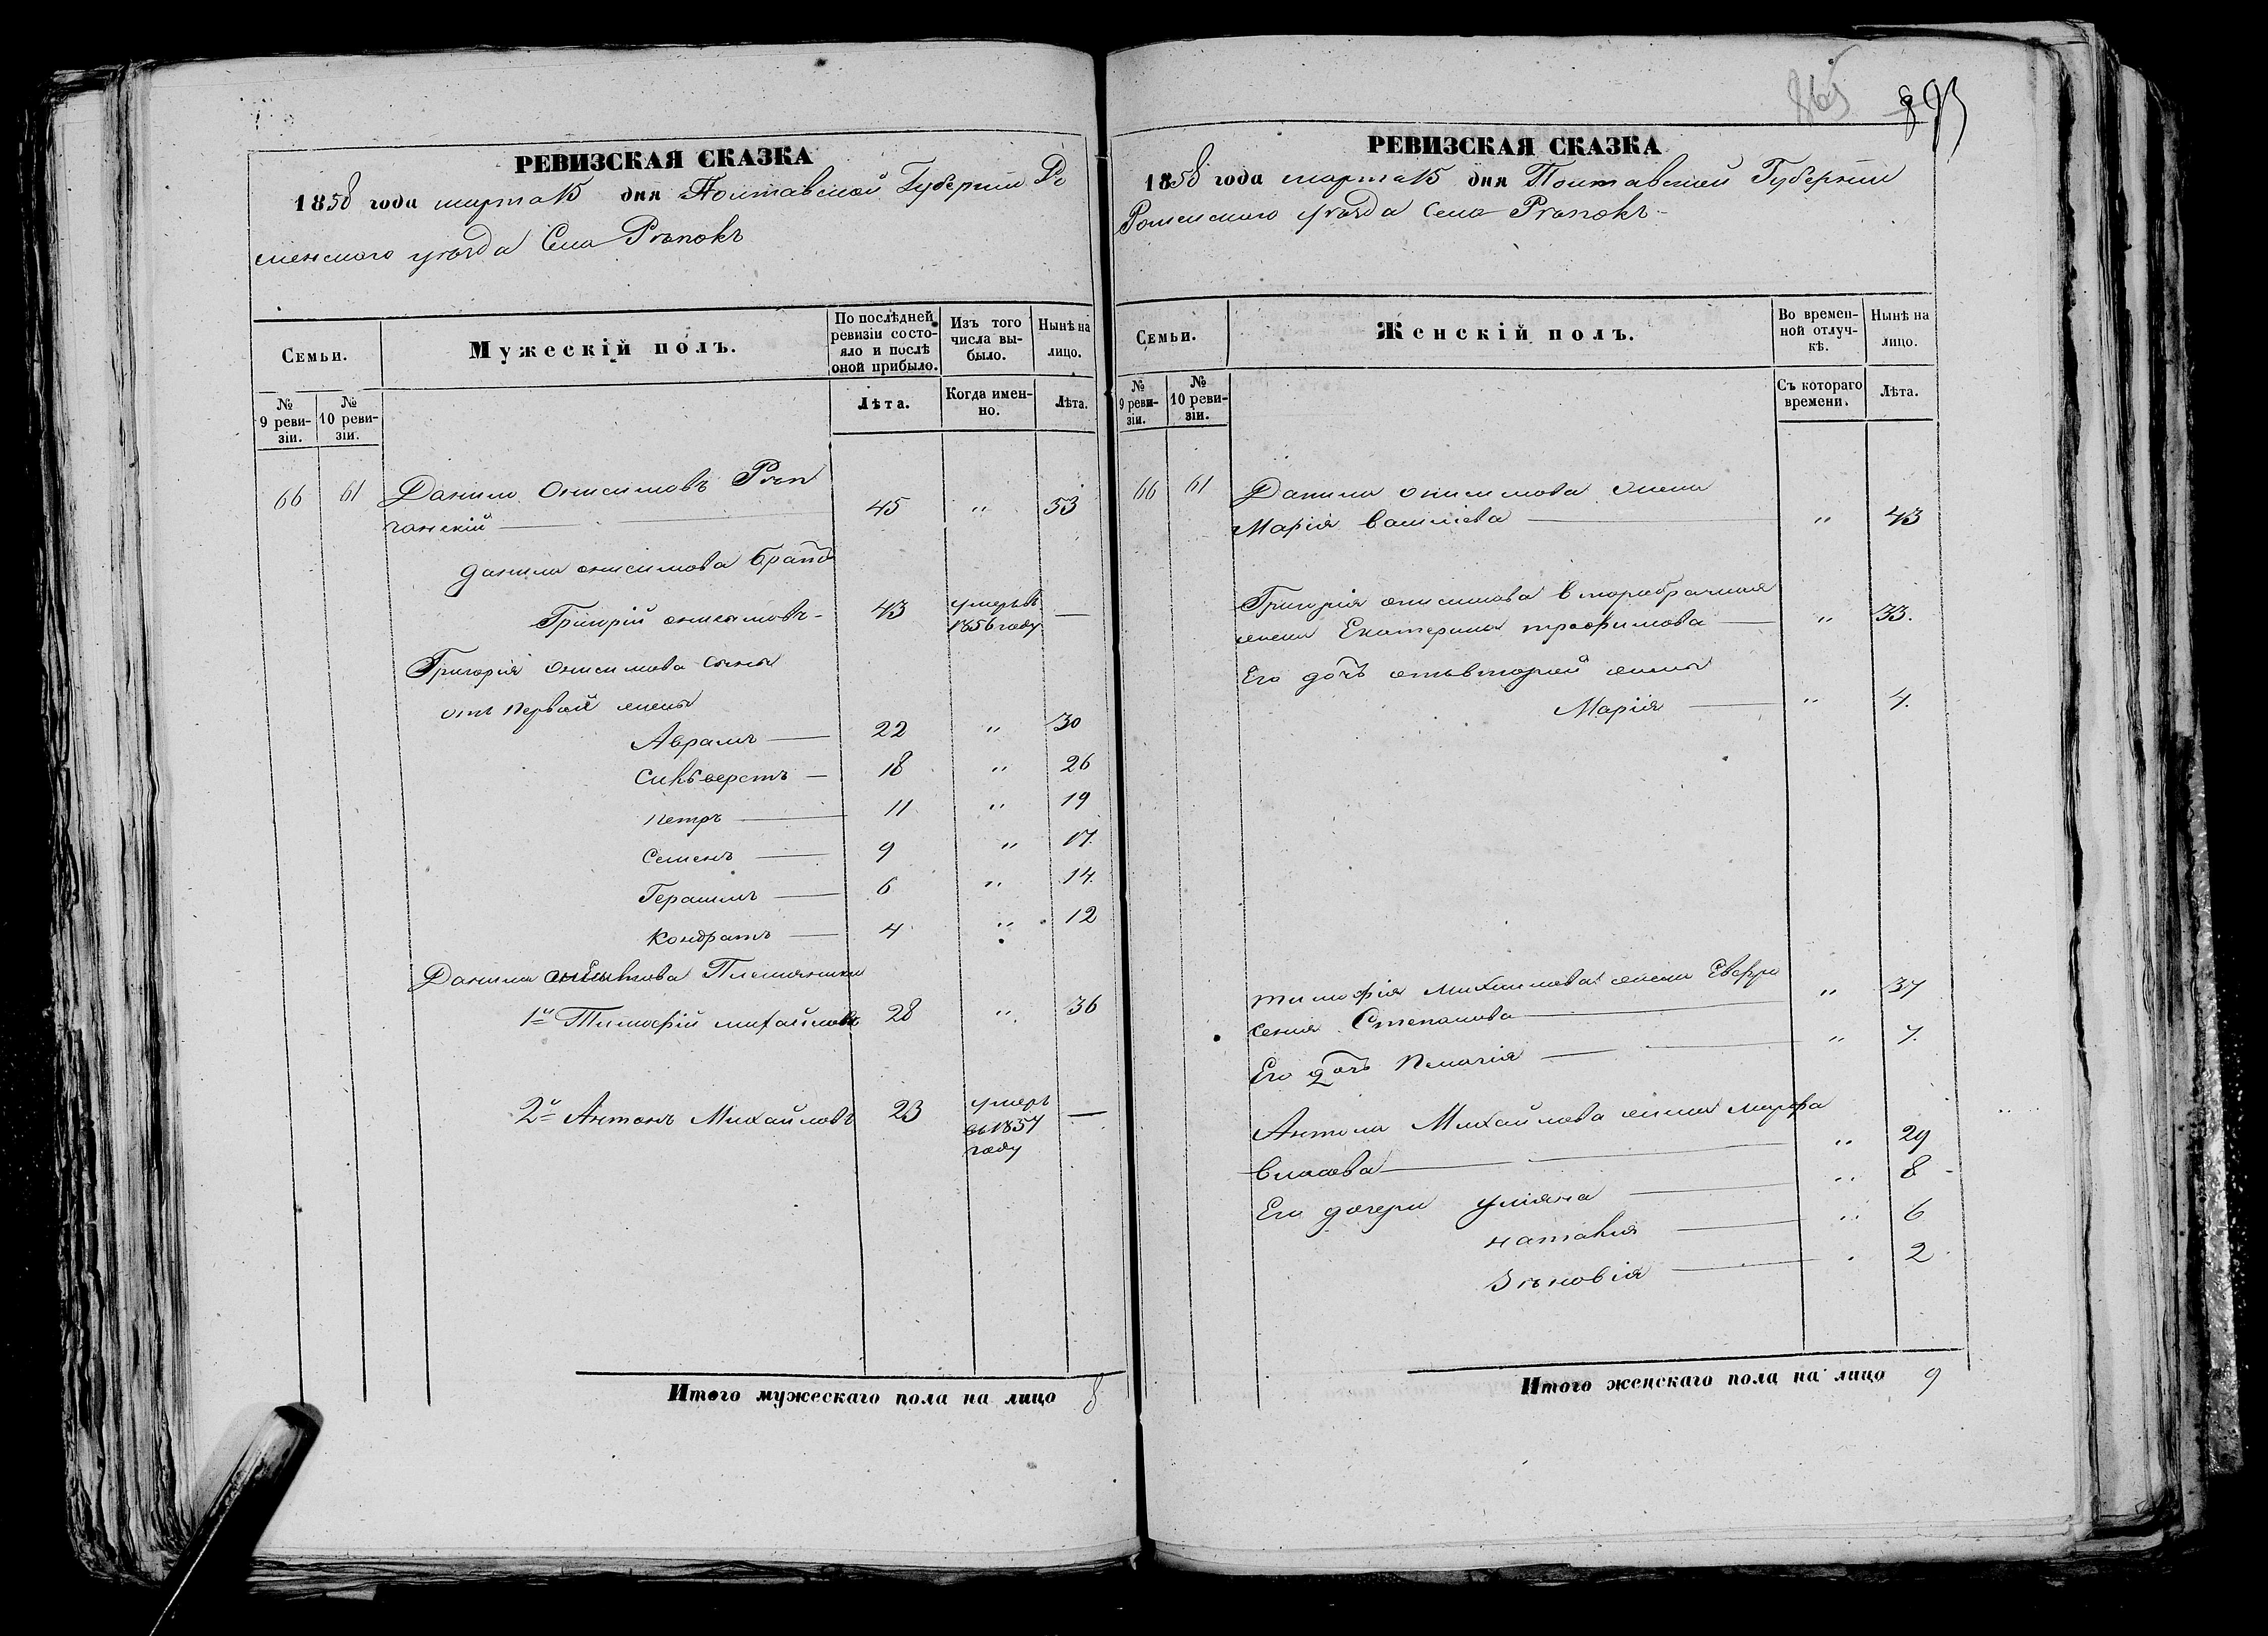 РЕВИЗСКАЯ СКАЗКА
1858 года марта 15 дня Полтавской Губернии Ро
менского уѣзда Села Рѣпокъ
Семьи.
Мужескій полъ.
По послѣдней ревизіи состояло и послѣ оной прибыло.
Изъ того числа выбыло.
Нынѣ на лицо.
№ 9 ревизіи.
№ 10 ревизіи.
Лѣта.
Когда именно.
Лѣта.
66 61 Данило Онисимовъ Рѣп
чанскій 45 " 53
Данила онисимова братъ
Григорій онисимовъ 43 умеръ въ 1856 году —
Григорія Онисимова сыны
отъ первой жены
Аврамъ 22 " 30
Сильверстъ 18 " 26
Петръ 11 " 19
Семенъ 9 " 17.
Герасимъ 6 " 14.
Кондратъ 4 " 12
Данила Племяники
1й Тимофій михайловъ 28 " 36
2й Антонъ Михайловъ 23 умеръ въ 1857 году —
Итого мужескаго пола на лицо 8
865 893
РЕВИЗСКАЯ СКАЗКА
1858 года марта 15 дня Полтавской Губернии
Роменского уѣзда Села Рѣпокъ
Семьи.
Женскій полъ.
Во временной отлучкѣ.
Нынѣ на лицо.
№ 9 ревизіи.
№ 10 ревизіи.
Съ котораго времени.
Лѣта.
66 61 Данила онисимова жена
Марія Василіева " 43
Григорія онисимова второбрачная
жена Екатерина трофимова " 33.
Его дочь отъ второй жены
Марія " 4.
тимофія михаилова жена Евфро
сенія Степанова " 37
Его дочь Пелагія " 7.
Антона Михайлова жена марфа
Власова " 29
Его дочери уліяна " 8
наталия " 6
Зѣновія " 2
Итого женскаго пола на лицо 9